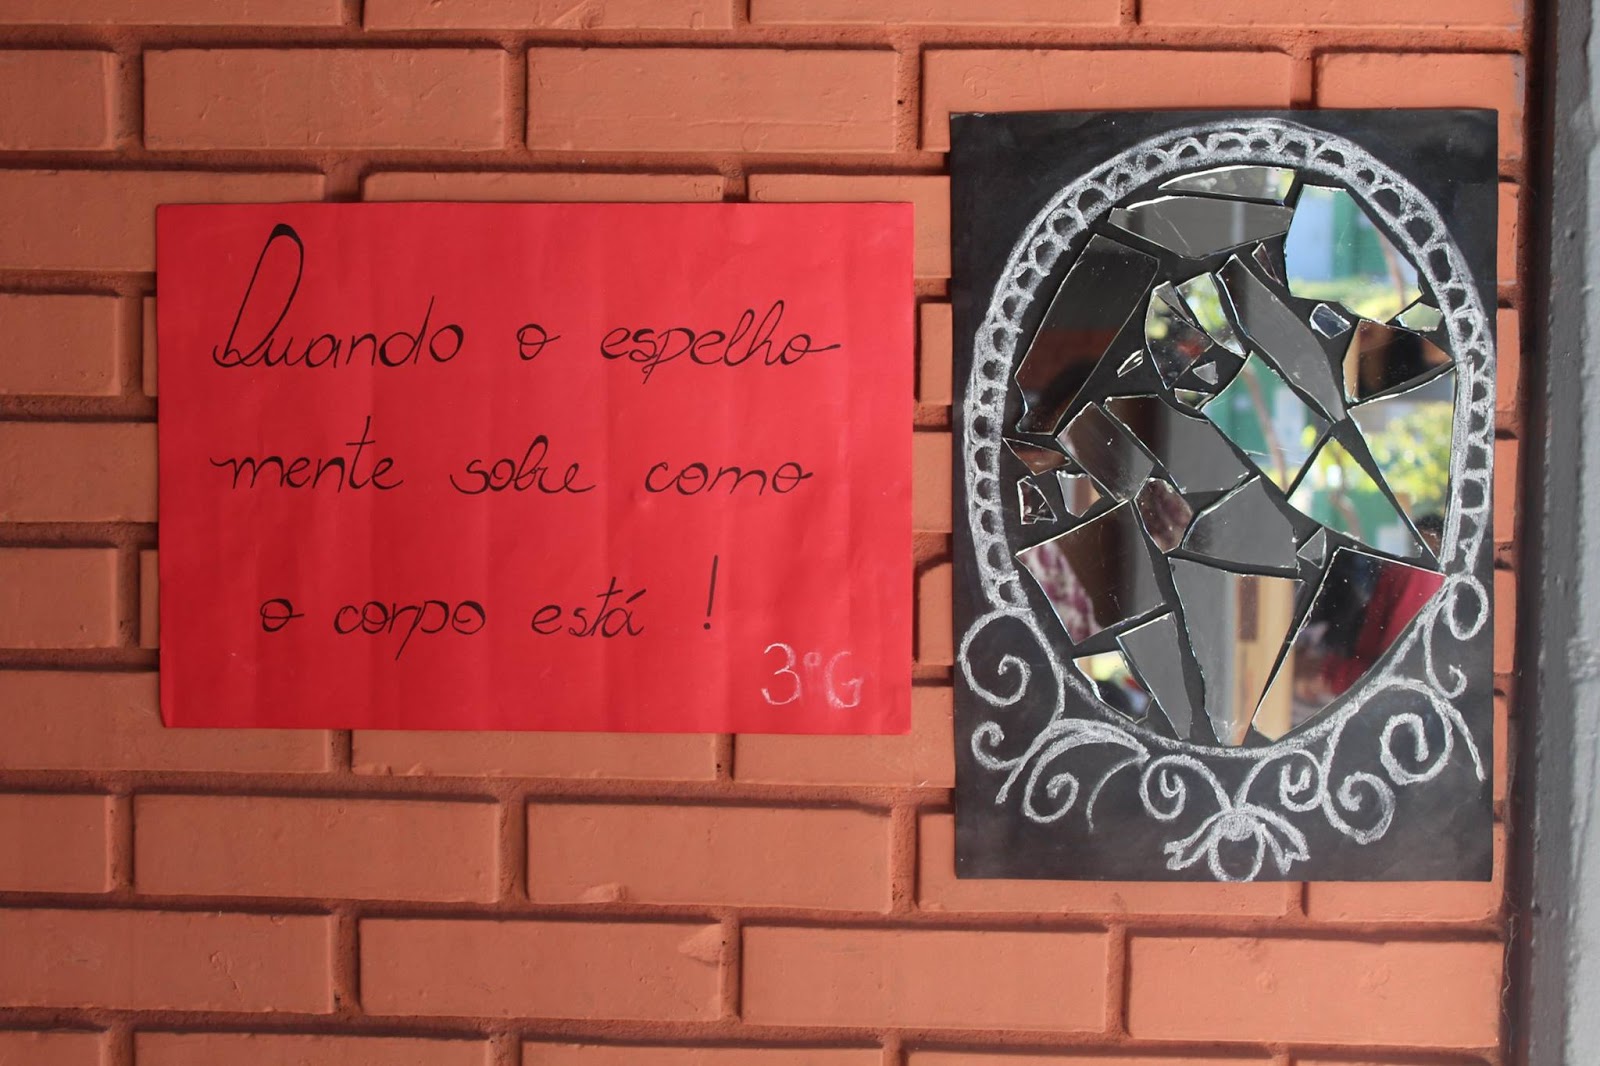 Quando o espelho
mente sobre como
o corpo está !
3ºG